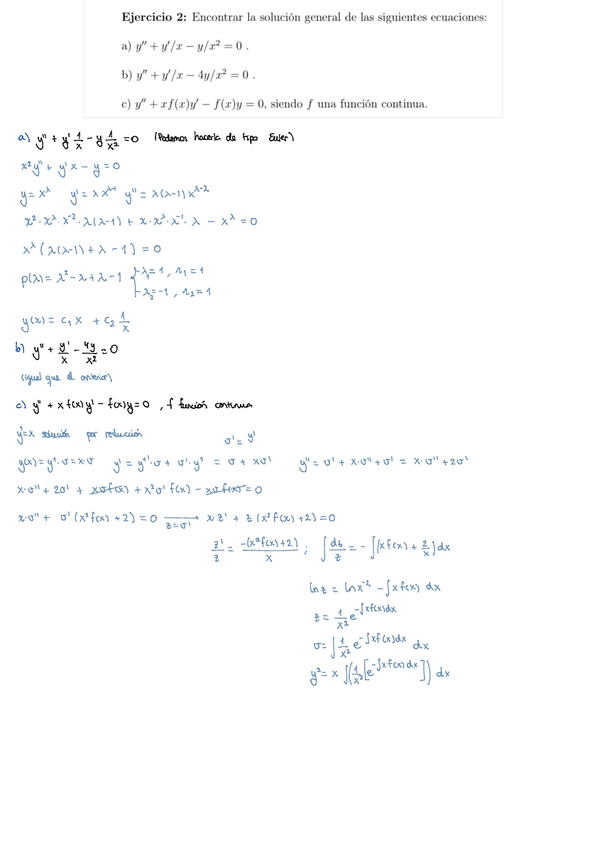 Ejercicio 2: Encontrar la solución general de las siguientes ecuaciones:
a) y'' + y'/x − y/x² = 0 .
b) y'' + y'/x − 4y/x² = 0 .
c) y'' + xf(x)y' − f(x)y = 0, siendo f una función continua.
a) y'' + y' 1/x − y 1/x² = 0 (Podemos hacerla de tipo Euler)
x²y'' + y'x − y = 0
y = x^λ y' = λ x^(λ-1) y'' = λ(λ-1) x^(λ-2)
x² · x^λ · x^-2 · λ(λ-1) + x · x^λ · x^-1 · λ − x^λ = 0
x^λ (λ(λ-1) + λ − 1) = 0
p(λ) = λ² − λ + λ − 1 { λ₁ = 1 , r₁ = 1
λ₂ = -1 , r₂ = 1
y(x) = C₁ x + C₂ 1/x
b) y'' + y'/x − 4y/x² = 0
(igual que el anterior)
c) y'' + x f(x) y' − f(x) y = 0 , f función continua
y¹ = x solución por reducción
y(x) = y¹ · v = x · v y' = y¹' · v + v' · y¹ = v + xv' y'' = v' + x · v'' + v' = x · v'' + 2v'
x · v'' + 2v' + xvf(x) + x²v' f(x) − xvf(x) = 0
x · v'' + v' (x²f(x) + 2) = 0 → z = v' x z' + z (x² f(x) + 2) = 0
z'/z = −(x² f(x) + 2)/x ; ∫ dz/z = − ∫ (x f(x) + 2/x) dx
ln z = ln x^-2 − ∫ x f(x) dx
z = 1/x² e^(-∫ x f(x) dx)
v = ∫ 1/x² e^(-∫ x f(x) dx) dx
y² = x ∫ (1/x² [e^(-∫ x f(x) dx)]) dx